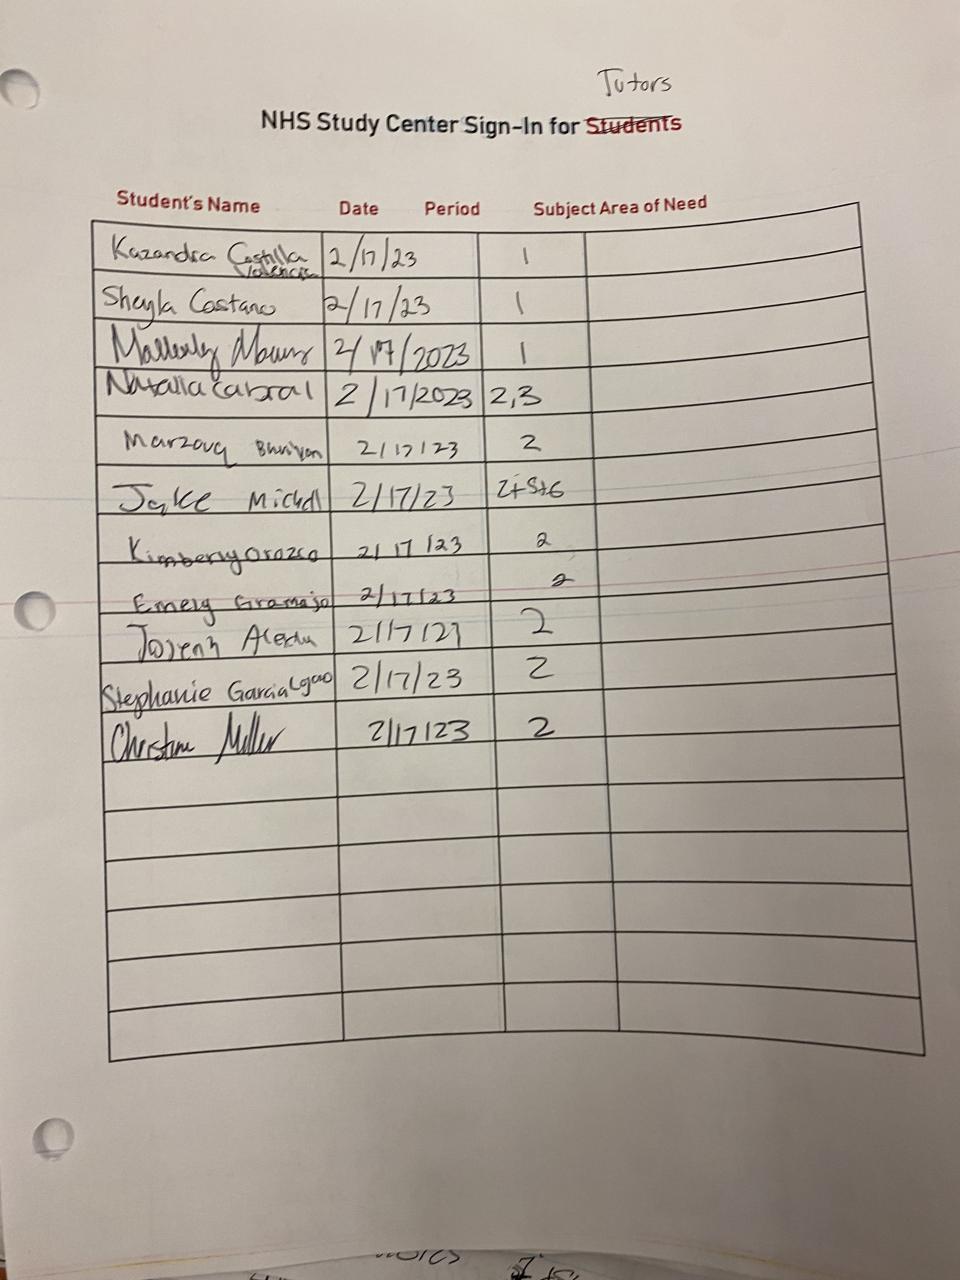 Tutors
NHS Study Center Sign-In for Students
Student's Name Date Period Subject Area of Need
Kazandra Castilla Valencia 2/17/23 1
Sheyla Castano 2/17/23 1
2/17/2023 1
Natalia Cabral 2/17/2023 2,3
Marzouq 2/17/23 2
Jake Michell 2/17/23 2+5+6
Kimberly Orozco 2/17/23 2
Emely Gramajo 2/17/23 2
Joseph 2/17/23 2
Stephanie Garcia 2/17/23 2
Christine Miller 2/17/23 2